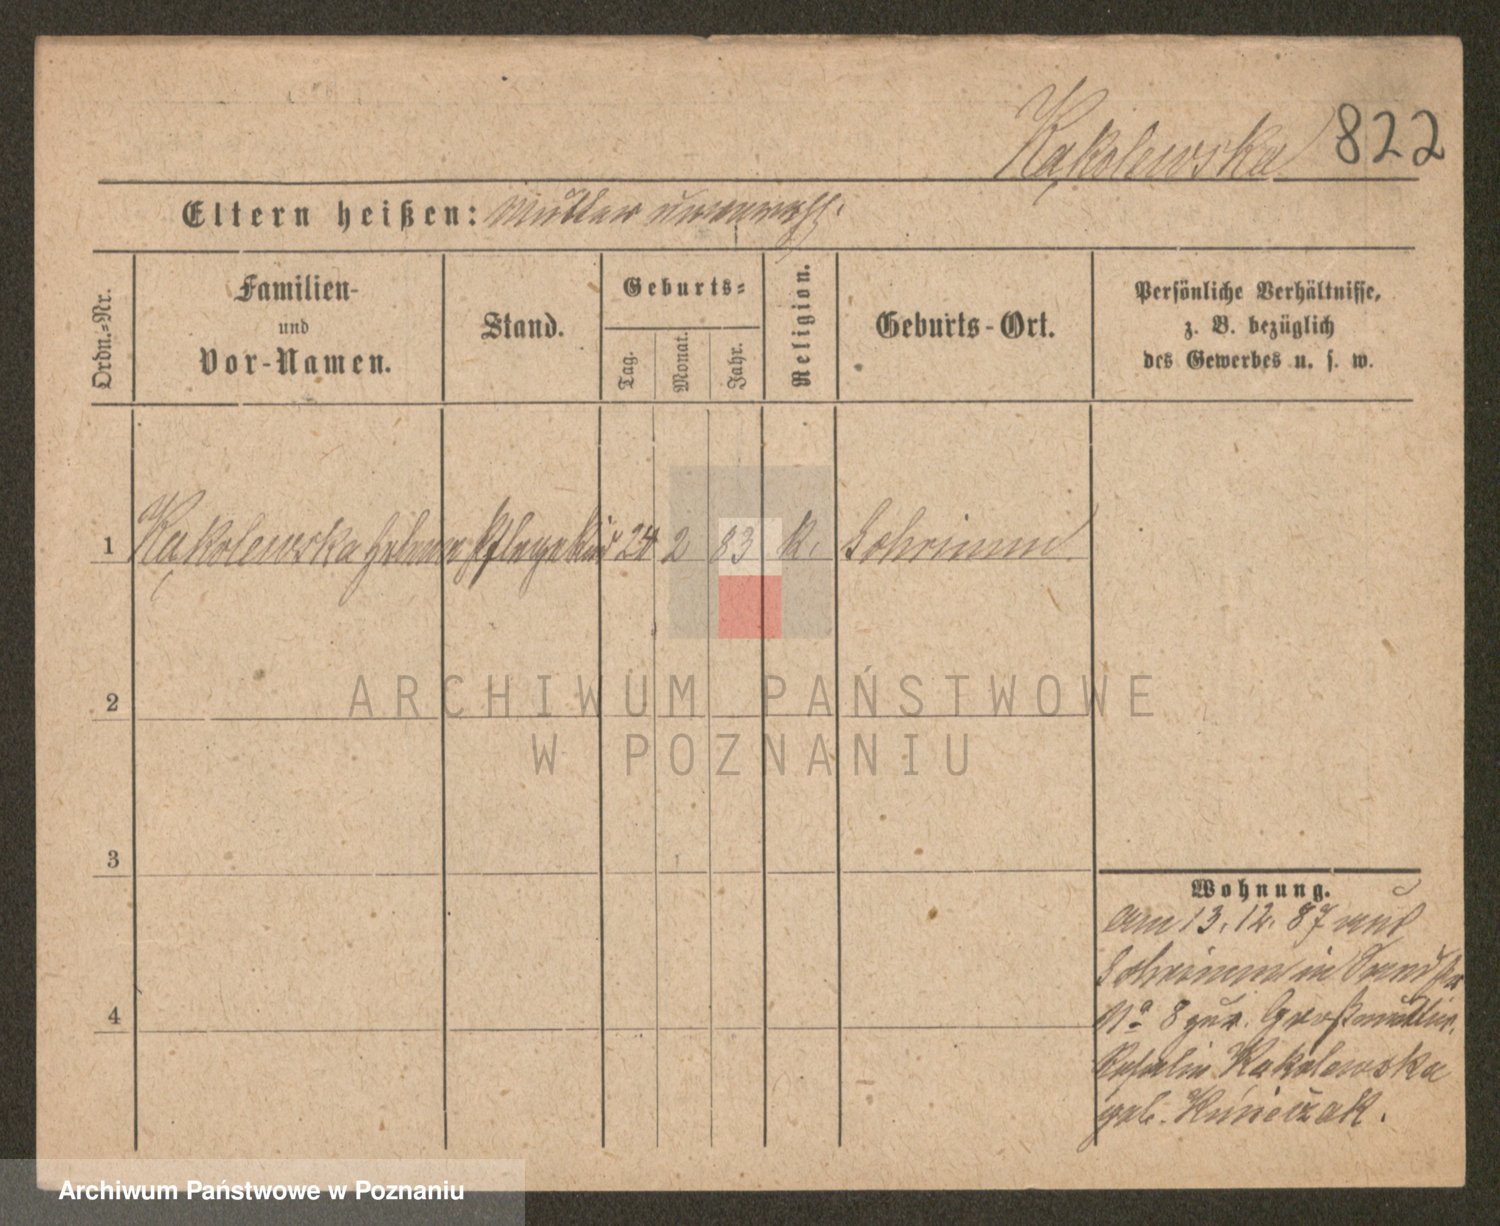 Kąkolewska 822
Eltern heißen: Mutter unverehl.
Ordn.=Nr.
Familien-
und
Vor-Namen.
Stand.
Geburts=
Tag.
Monat.
Jahr.
Religion.
Geburts-Ort.
Persönliche Verhältnisse,
z. B. bezüglich
des Gewerbes u. s. w.
1 Kąkolewska Helene Pflegekind 24 2 83 k. Schrimm
2
3
4
Wohnung.
Am 13. 12. 87 aus
Schrimm in
No 8 zur Großmutter
Kąkolewska
geb.
ARCHIWUM PAŃSTWOWE
W POZNANIU
Archiwum Państwowe w Poznaniu